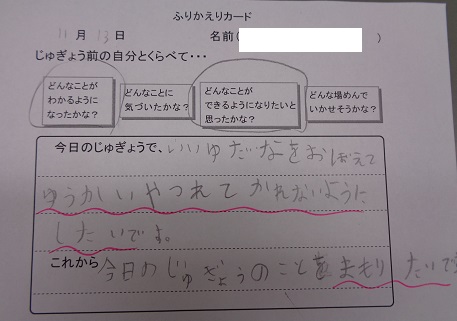 ふりかえりカード
11月13日 名前( )
じゅぎょう前の自分とくらべて・・・
どんなことがわかるようになったかな?
どんなことに気づいたかな?
どんなことができるようになりたいと思ったかな?
どんな場めんでいかせそうかな?
今日のじゅぎょうで、いいゆだなをおぼえて
ゆうかいやつれてかれないように
したいです。
これから今日のじゅぎょうのことをまもりたいです